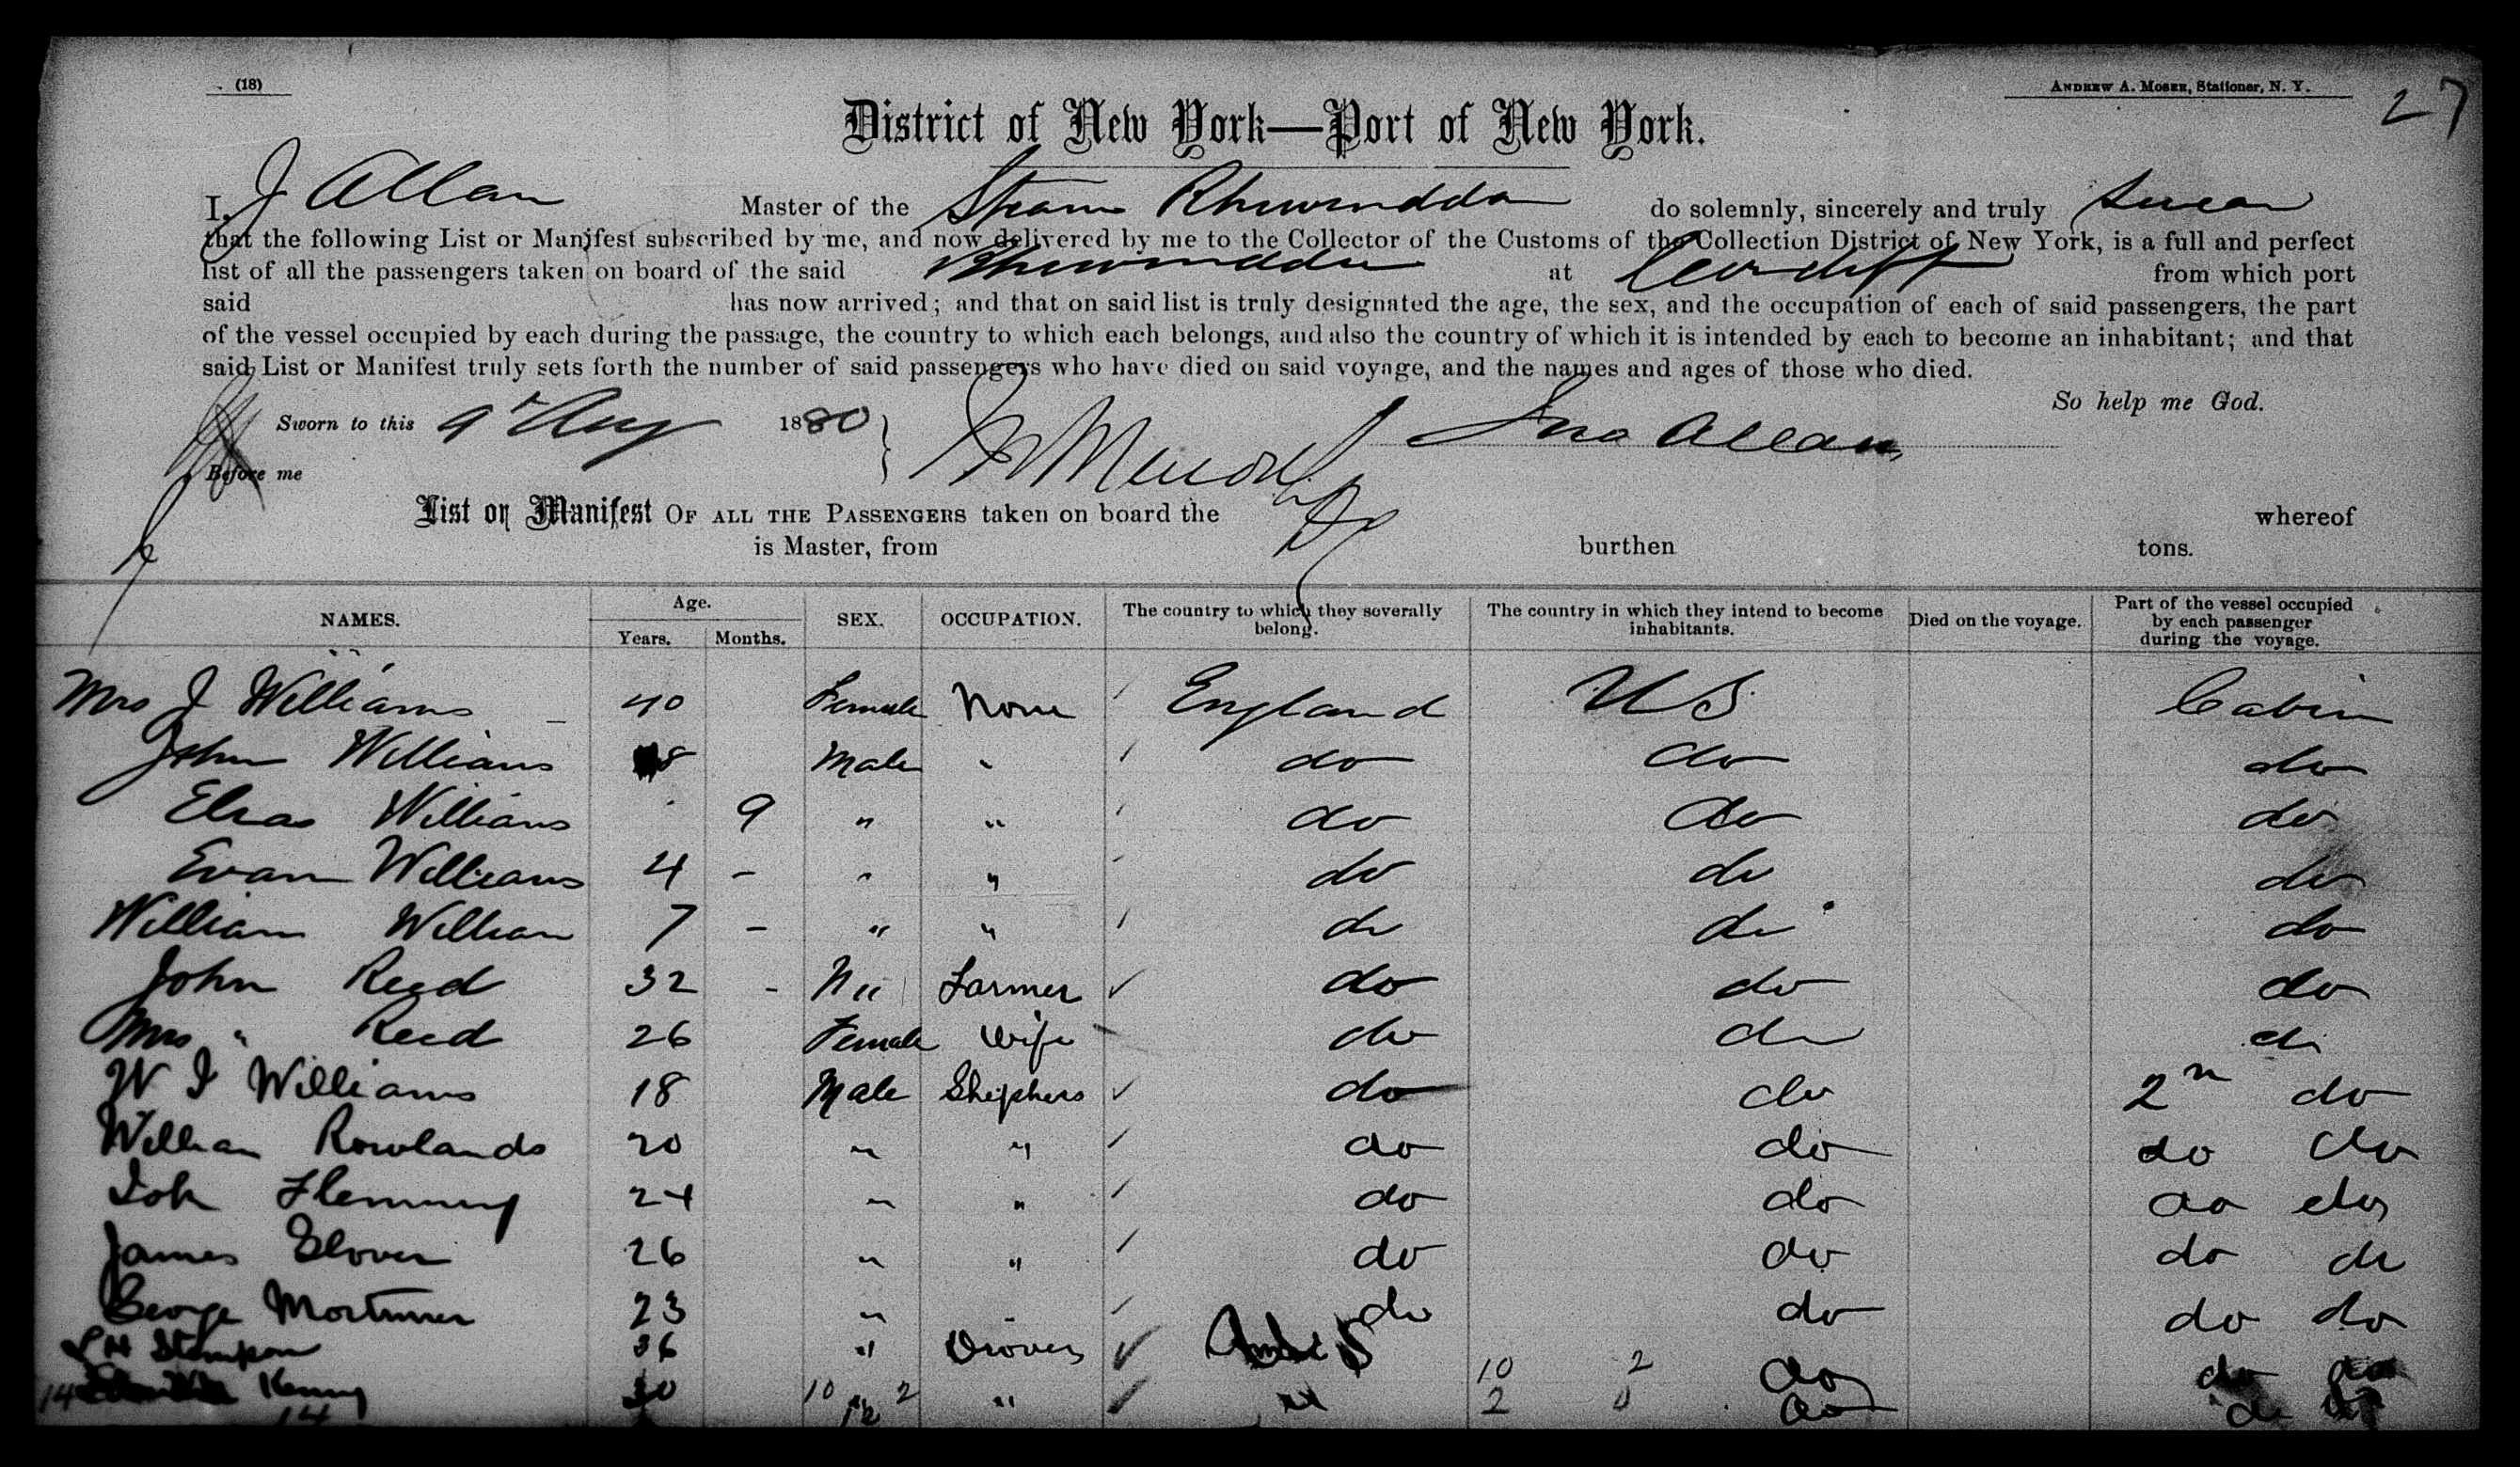 (18)
ANDREW A. MOSER, Stationer, N. Y.
27
District of New York—Port of New York.
I, J Allan Master of the Steam Rhiwindda do solemnly, sincerely and truly swear
that the following List or Manifest subscribed by me, and now delivered by me to the Collector of the Customs of the Collection District of New York, is a full and perfect
list of all the passengers taken on board of the said Rhiwindda at Cardiff from which port
said has now arrived; and that on said list is truly designated the age, the sex, and the occupation of each of said passengers, the part
of the vessel occupied by each during the passage, the country to which each belongs, and also the country of which it is intended by each to become an inhabitant; and that
said List or Manifest truly sets forth the number of said passengers who have died on said voyage, and the names and ages of those who died.
So help me God.
Sworn to this 9 Aug 1880 } Jno Allan
Before me
List or Manifest OF ALL THE PASSENGERS taken on board the whereof
is Master, from burthen tons.
NAMES. Age. Years. Months. SEX. OCCUPATION. The country to which they severally belong. The country in which they intend to become inhabitants. Died on the voyage. Part of the vessel occupied by each passenger during the voyage.
Mrs J Williams 40 Female None England U S Cabin
John Williams 8 Male " do do do
Elias Williams 9 " " do do do
Evan Williams 4 - " " do do do
William William 7 - " " do do do
John Reed 32 - " Farmer do do do
Mrs " Reed 26 Female Wife do do do
W J Williams 18 Male Shephers do do 2n do
William Rowlands 20 " " do do do do
Joh Flemming 24 " " do do do do
James Glover 26 " " do do do do
George Mortimer 23 " " do do do do
H Stimpson 36 " Drover do do do
14 Kenny 30 " " " do do do
10 2
12
10 2
2 0
14